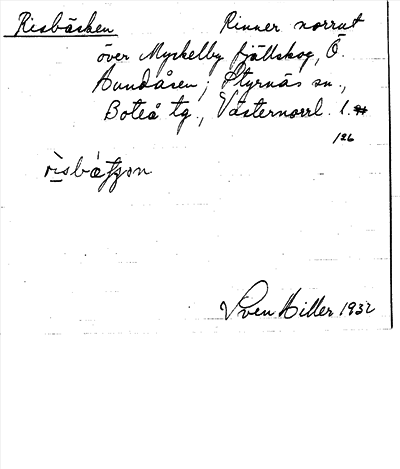 Risbäcken Rinner norrut
över Myckelby fjällskog, Ö.
Aundåsen; Styrnäs sn.,
Boteå tg., Västernorrl. l.
126
risbæʃʃɔn
Sven Hiller 1932